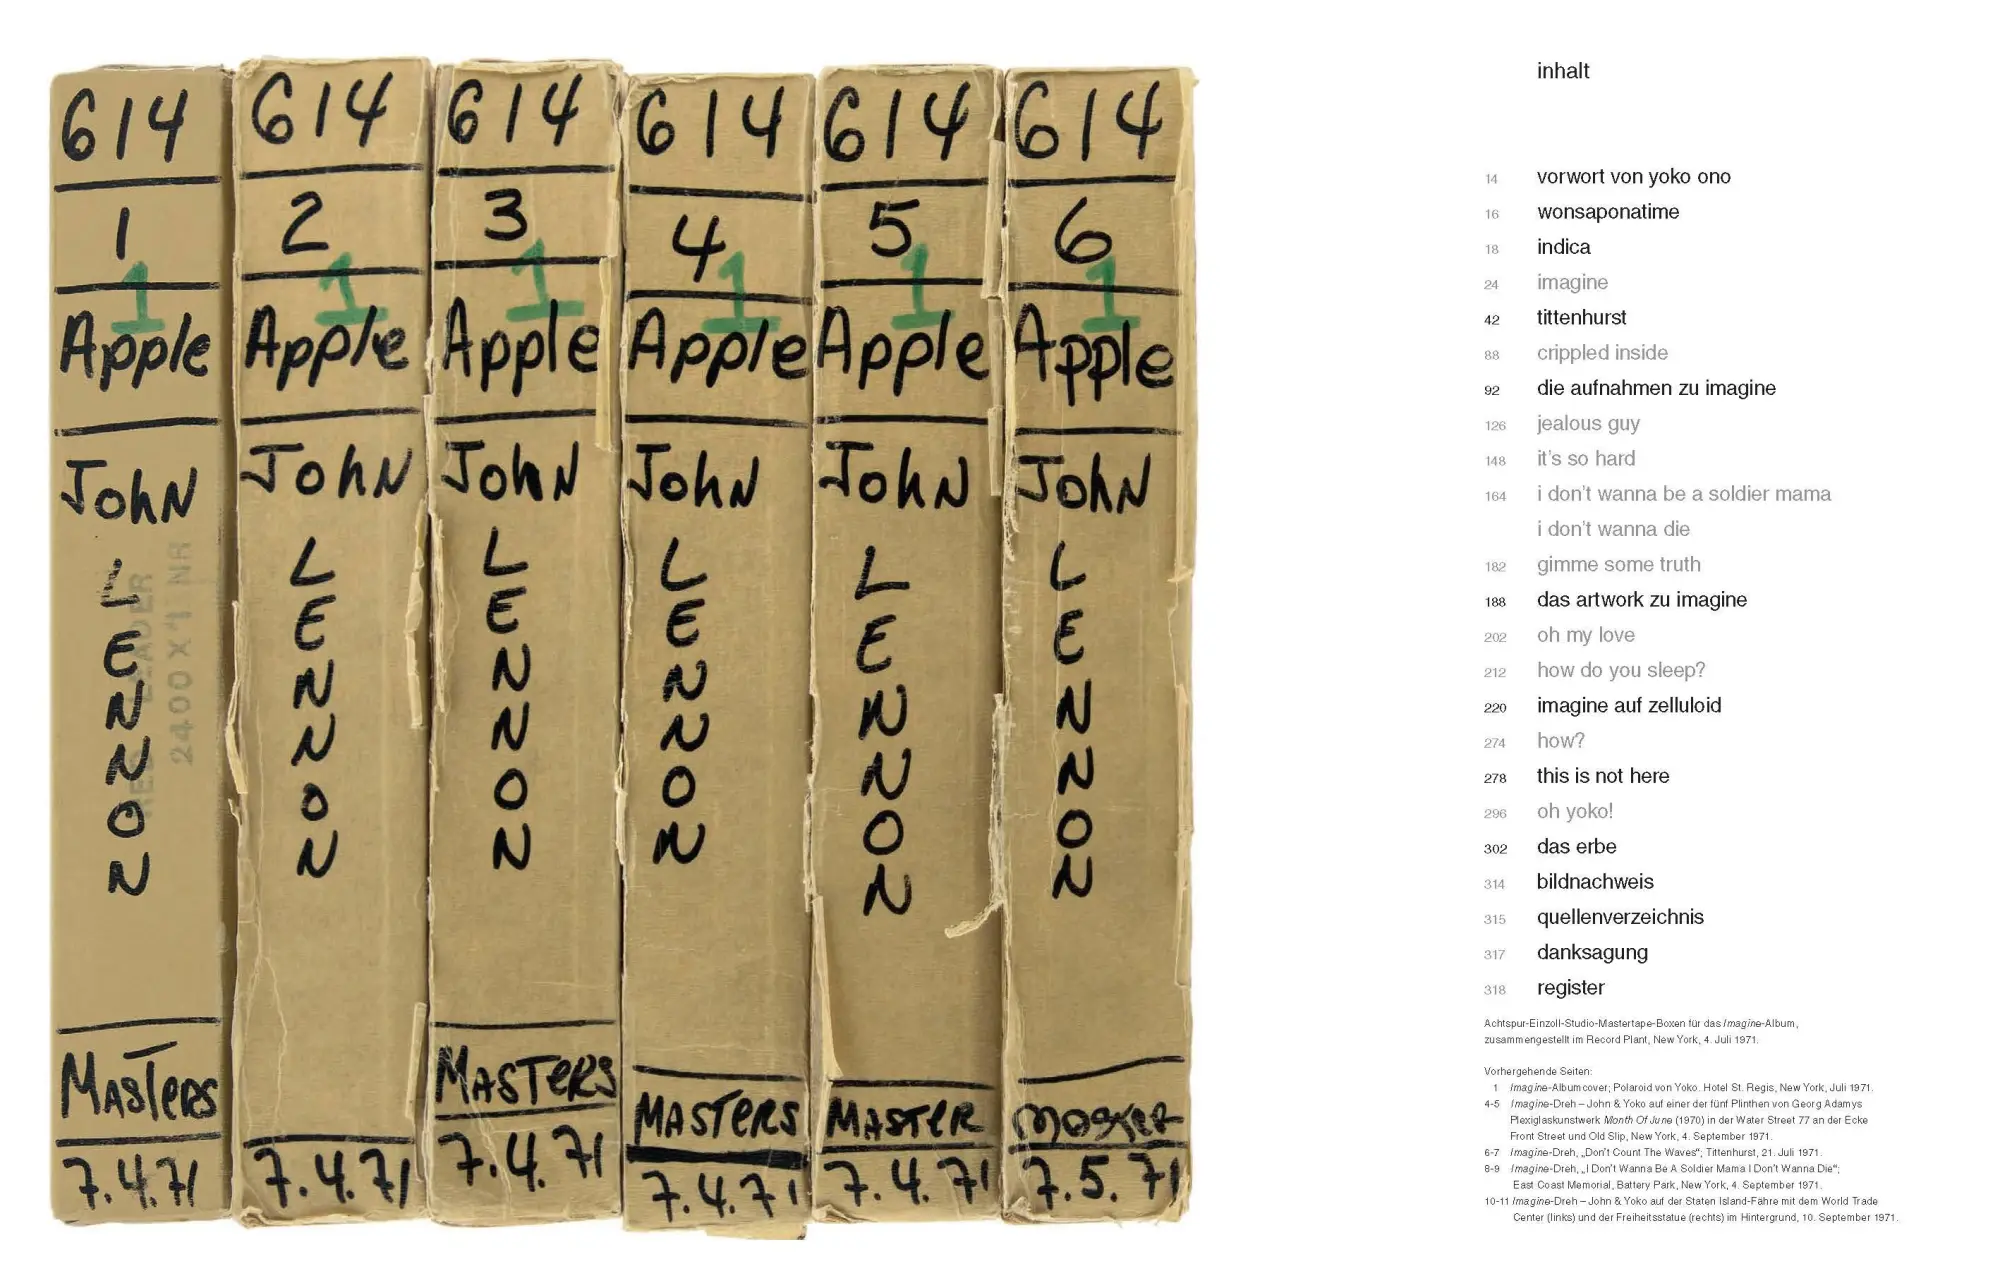 614
1
1
Apple
John
LENNON
Masters
7.4.71
614
2
1
Apple
John
LENNON
7.4.71
614
3
1
Apple
John
LENNON
MASTERS
7.4.71
614
4
1
Apple
John
LENNON
MASTERS
7.4.71
614
5
1
Apple
John
LENNON
MASTER
7.4.71
614
6
1
Apple
John
LENNON
7.5.71
LEADER
2400 X 1 NR
inhalt
14 vorwort von yoko ono
16 wonsaponatime
18 indica
24 imagine
42 tittenhurst
88 crippled inside
92 die aufnahmen zu imagine
126 jealous guy
148 it's so hard
164 i don't wanna be a soldier mama
i don't wanna die
182 gimme some truth
188 das artwork zu imagine
202 oh my love
212 how do you sleep?
220 imagine auf zelluloid
274 how?
278 this is not here
296 oh yoko!
302 das erbe
314 bildnachweis
315 quellenverzeichnis
317 danksagung
318 register
Achtspur-Einzoll-Studio-Mastertape-Boxen für das Imagine-Album,
zusammengestellt im Record Plant, New York, 4. Juli 1971.
Vorhergehende Seiten:
1 Imagine-Albumcover; Polaroid von Yoko. Hotel St. Regis, New York, Juli 1971.
4-5 Imagine-Dreh – John & Yoko auf einer der fünf Plinthen von Georg Adamys
Plexiglaskunstwerk Month Of June (1970) in der Water Street 77 an der Ecke
Front Street und Old Slip, New York, 4. September 1971.
6-7 Imagine-Dreh, „Don't Count The Waves“; Tittenhurst, 21. Juli 1971.
8-9 Imagine-Dreh, „I Don't Wanna Be A Soldier Mama I Don't Wanna Die“;
East Coast Memorial, Battery Park, New York, 4. September 1971.
10-11 Imagine-Dreh – John & Yoko auf der Staten Island-Fähre mit dem World Trade
Center (links) und der Freiheitsstatue (rechts) im Hintergrund, 10. September 1971.